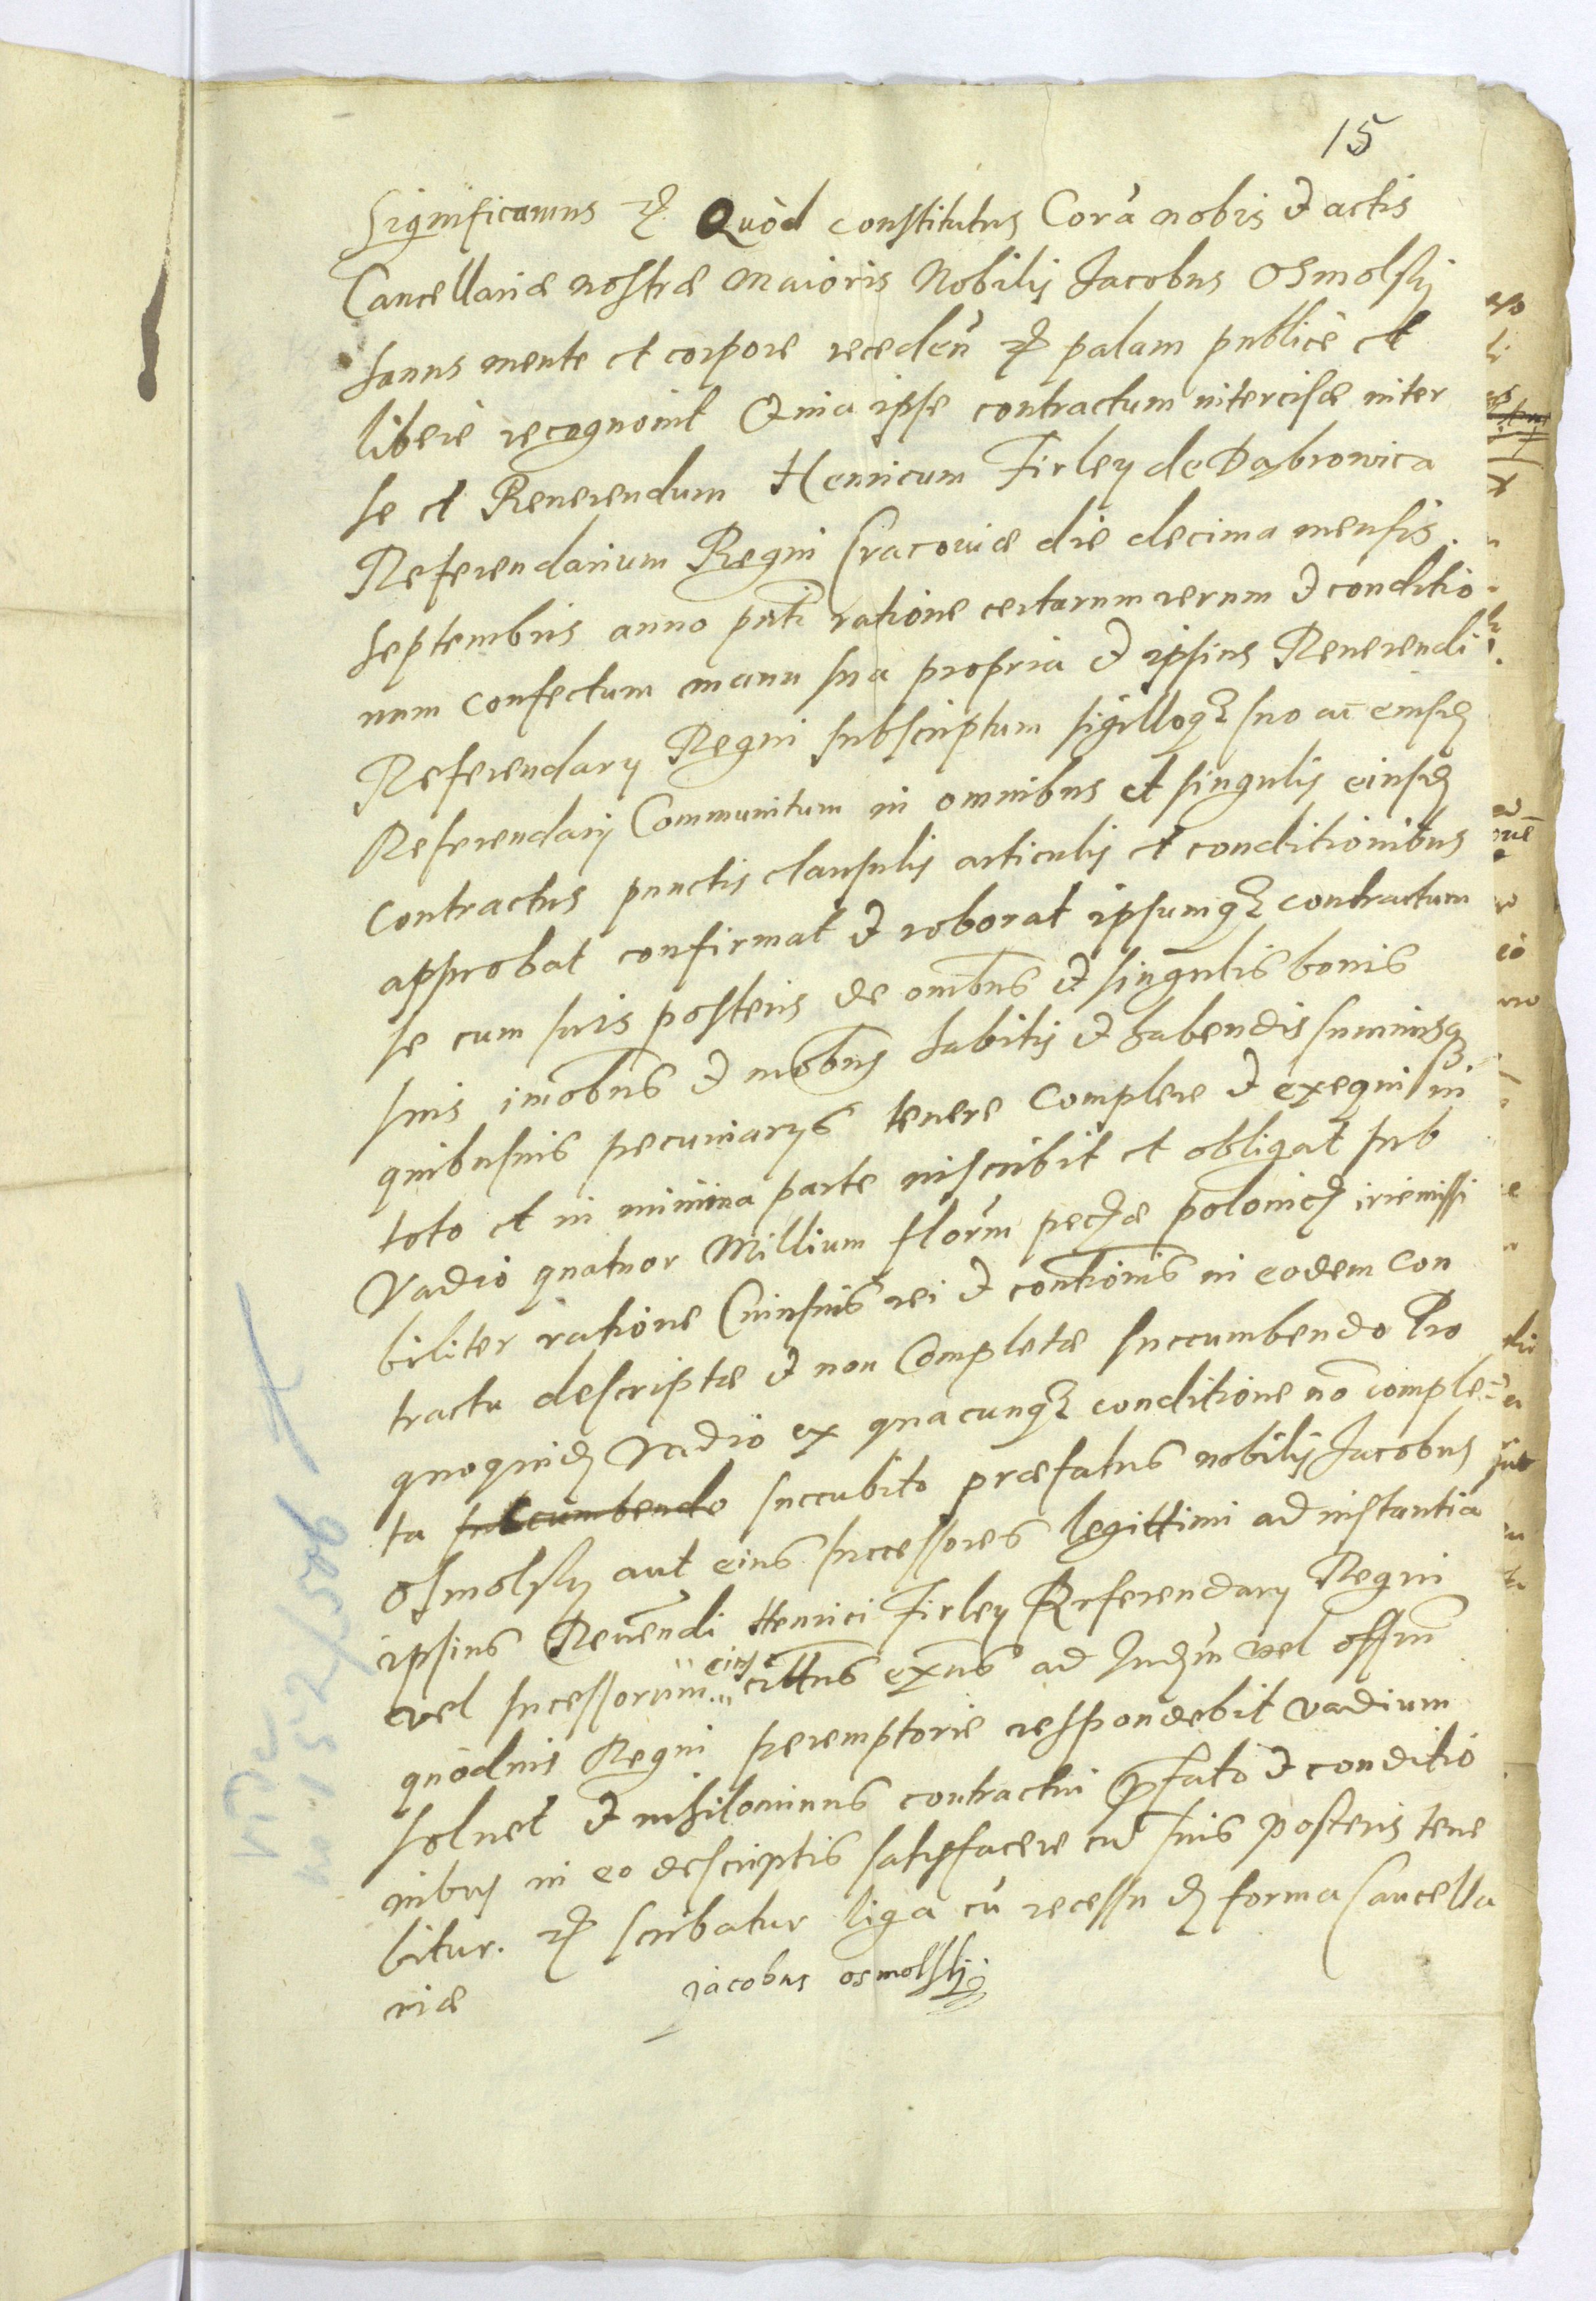 15
Significamus etc Quòd constitutus Corā nobis et actis
Cancellariæ nostræ maioris Nobilis Jacobus Osmolsky
sanus mente et corpore recedeñ etc palam publicè et
liberè recognovit Quia ipse contractum intercisæ inter
se et Reuerendum Henricum Firley de Dąbrowica
Referendarium Regni Cracouiæ die decima mensis
Septembris anno pñti ratione certarum rerum et conditio
num confectum manu sua propria et ipsius Reuerendi
Referendarÿ Regni subscriptum sigilloq3 suo ac eiusđ
Referendarÿ Communitum in omnibus et singulis eiusđ
contractus punctis clausulis articulis et conditionibus
approbat confirmat et roborat ipsumq3 contractum
se cum suis posteris de omībus et singulis bonis
suis imōbus et mōbus habitis et habendis summisq3
quibusuis pecuniarÿs tenere complere et exequi in
toto et in minima parte inscribit et obligat sub
Vadio quatuor Millium florm̃ pecæ polonić irremissi
biliter ratione Cuiusuis rei et conđtionis in eodem con
tractu descriptæ et non Completæ succumbendo Pro
quoquidē Vadio ex quacunq3 conditione nō comple=
ta succumbendo succubito præfatus nobilis Jacobus
Osmolsky aut eius successores legittimi ad instantia
ipsius Reuēndi Henrici Firley Referendarÿ Regni
vel sucessorum eius cittus exñs ad Judm̃ vel offm̃
quoduis Regni peremptorie respondebit vadium
soluet et nihilominus contractui pfato et conditio
nibus in eo descriptis satisfacere cū suis posteris tene
bitur. etc scribatur liga cū recessu đ forma Cancella
riæ
jacobus osmolskÿ